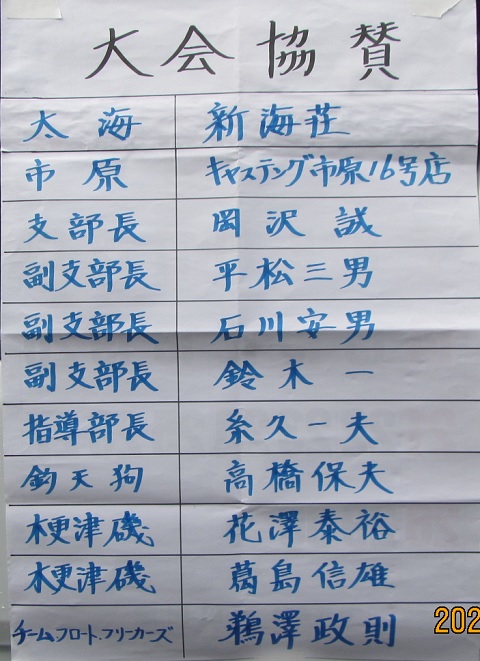 大会協賛
太海 新海荘
市原 キャスティング市原16号店
支部長 岡沢誠
副支部長 平松三男
副支部長 石川安男
副支部長 鈴木一
指導部長 糸久一夫
釣天狗 高橋保夫
木更津磯 花澤泰裕
木更津磯 葛島信雄
チームフロートフリーカーズ 鵜澤政則
202